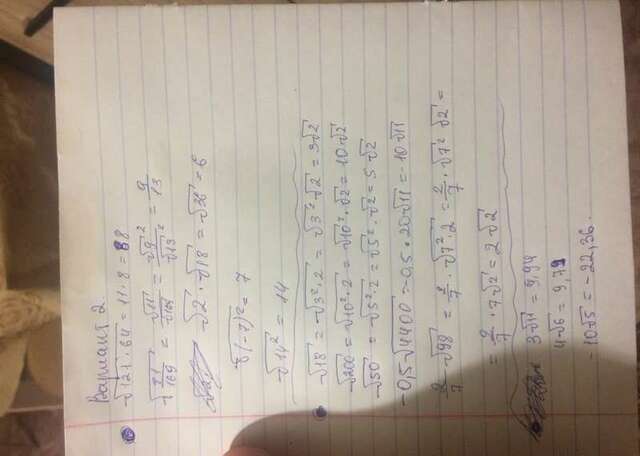 Вариант 2.
√121·64 = 11·8 = 88
√2 · √18 = √36 = 6
√(-7)² = 7
√14² = 14
√18 = √3²·2 = √3² · √2 = 3√2
√200 = √10²·2 = √10² · √2 = 10√2
√50 = √5²·2 = √5² · √2 = 5√2
-0,5√4400 = -0,5·20√11 = -10√11
√98 = 2/7 · √7²·2 = 2/7 · √7² √2 =
= 2/7 · 7√2 = 2√2
3√11 = 9,94
4√6 = 9,79
-10√5 = -22,36.